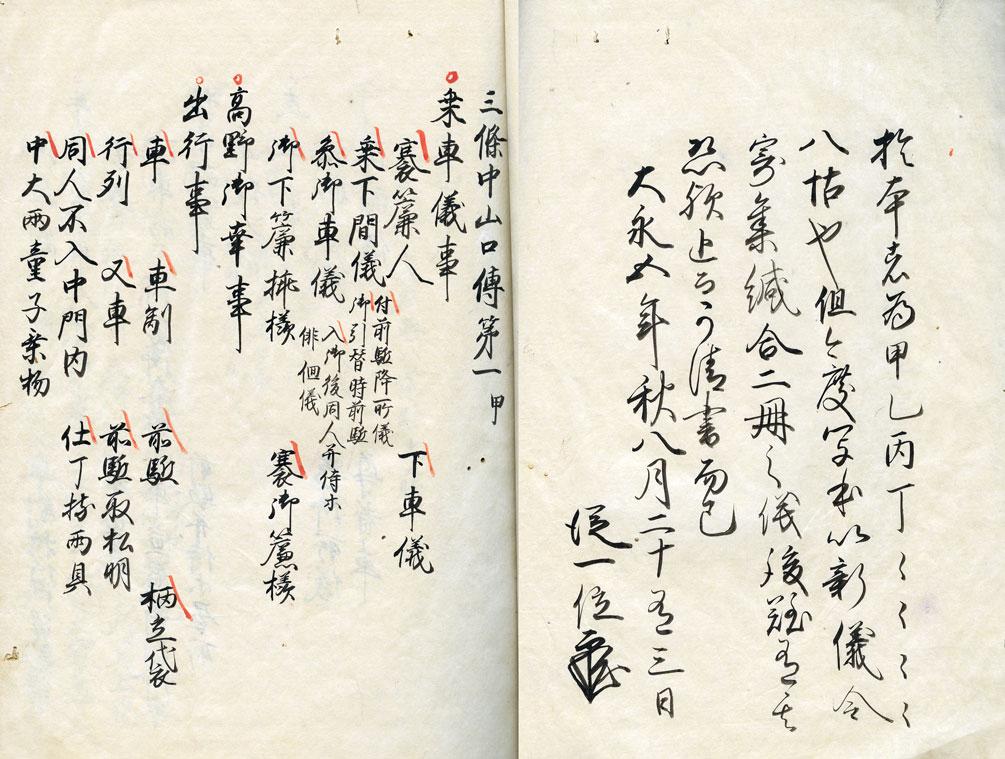 於本者為甲乙丙丁〻〻〻〻
八帖也但今度写本以新儀令
寄集縅合二冊之儀後難有其
恐欤追而可清書而已
大永五年秋八月二十有三日
従一位
三條中山口傳第一甲
乗車儀事
褰簾人
乗下間儀 付前駈降所儀 御引替時前駈 下車儀
参御車儀 入御後同人并侍ホ 俳佪儀
御下簾捶様 褰御簾様
高野御幸事
出行事
車 車副 前駈 柄立袋
行列 又車 前駈取松明
同人不入中門内 仕丁持雨具
中大両童子乗物